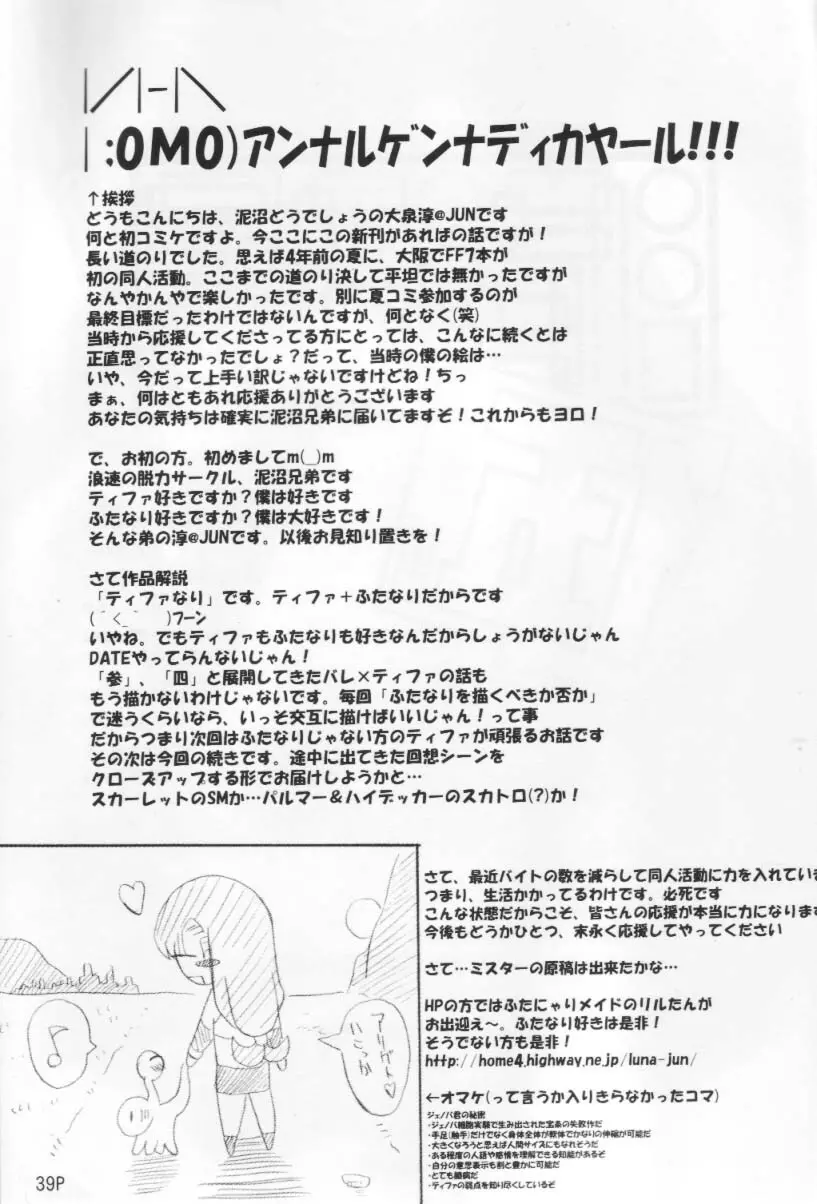 |／|-|＼
| :OMO)アンナルゲンナディカヤール!!!
↑挨拶
どうもこんにちは、泥沼どうでしょうの大泉淳@JUNです
何と初コミケですよ。今ここにこの新刊があればの話ですが！
長い道のりでした。思えば4年前の夏に、大阪でFF7本が
初の同人活動。ここまでの道のり決して平坦では無かったですが
なんやかんやで楽しかったです。別に夏コミ参加するのが
最終目標だったわけではないんですが、何となく(笑)
当時から応援してくださってる方にとっては、こんなに続くとは
正直思ってなかったでしょ？だって、当時の僕の絵は…
いや、今だって上手い訳じゃないですけどね！ちっ
まぁ、何はともあれ応援ありがとうございます
あなたの気持ちは確実に泥沼兄弟に届いてますぞ！これからもヨロ！
で、お初の方。初めましてm(_)m
浪速の脱力サークル、泥沼兄弟です
ティファ好きですか？僕は好きです
ふたなり好きですか？僕は大好きです！
そんな弟の淳@JUNです。以後お見知り置きを！
さて作品解説
「ティファなり」です。ティファ＋ふたなりだからです
(´<_` )フーン
いやね。でもティファもふたなりも好きなんだからしょうがないじゃん
DATEやってらんないじゃん！
「参」、「四」と展開してきたバレ×ティファの話も
もう描かないわけじゃないです。毎回「ふたなりを描くべきか否か」
で迷うくらいなら、いっそ交互に描けばいいじゃん！って事
だからつまり次回はふたなりじゃない方のティファが頑張るお話です
その次は今回の続きです。途中に出てきた回想シーンを
クローズアップする形でお届けしようかと…
スカーレットのSMか…パルマー＆ハイデッカーのスカトロ(?)か！
さて、最近バイトの数を減らして同人活動に力を入れていま
つまり、生活かかってるわけです。必死です
こんな状態だからこそ、皆さんの応援が本当に力になります
今後もどうかひとつ、末永く応援してやってください
さて…ミスターの原稿は出来たかな…
HPの方ではふたにゃりメイドのリルたんが
お出迎え〜。ふたなり好きは是非！
そうでない方も是非！
http://home4.highway.ne.jp/luna-jun/
←オマケ(って言うか入りきらなかったコマ)
ジェノバ君の秘密
・ジェノバ細胞実験で生み出された宝条の失敗作だ
・手足(触手)だけでなく身体全体が軟体でかなりの伸縮が可能だ
・大きくなろうと思えば人間サイズにもなれそうだ
・ある程度の人語や感情を理解できる知能があるぞ
・自分の意思表示も割と豊かに可能だ
・とても臆病だ
・ティファの弱点を知り尽くしているぞ
♪
39P